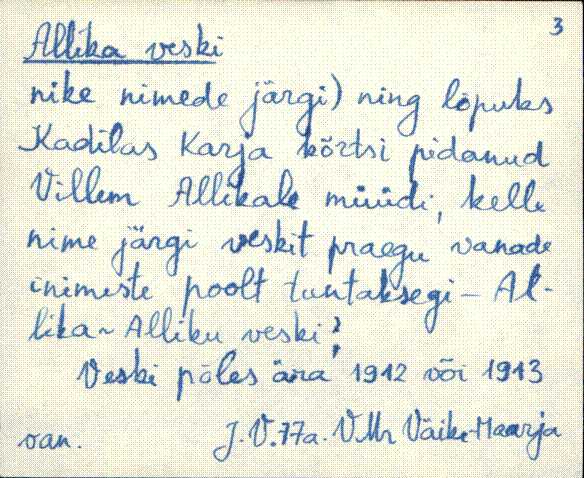 3
Allika veski
nike nimede järgi) ning lõpuks
Kadilas Karja kõrtsi pidanud
Villem Allikale müüdi, kelle
nime järgi veskit praegu vanade
inimeste poolt tuntaksegi - Al-
lika ~ Alliku veski;
Veski põles ära 1912 või 1913
van. J. V. 77a. VMr Väike-Maarja